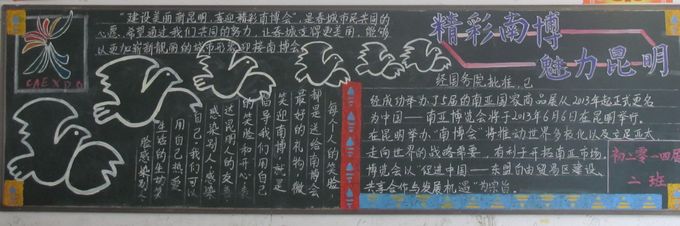 "建设美丽新昆明,喜迎精彩南博会",是春城市民共同的
心愿,希望通过我们共同的努力,让春城变得更美丽,能够
以更加崭新靓丽的城市形象迎接南博会。
每个人的笑脸,
都是送给南博会
最好的礼物,微
笑迎南博,就是
倡导我们用自己
的笑脸和开心,表
达昆明人的友善,
感染别人,感染
自己。我们可以
用自己热爱
生活的生动笑
脸感染别人
精彩南博
魅力昆明
经国务院批准,已
经成功举办了5届的南亚国家商品展从2013年起正式更名
为中国——南亚博览会将于2013年6月6日在昆明举行。
在昆明举办"南博会"将推动世界多极化以及云足亚太、
走向世界的战略需要,有利于开拓南亚市场。
博览会以"促进中国——东盟自由贸易区建设、
共享合作与发展机遇"为宗旨。
初二〇一四届
二班